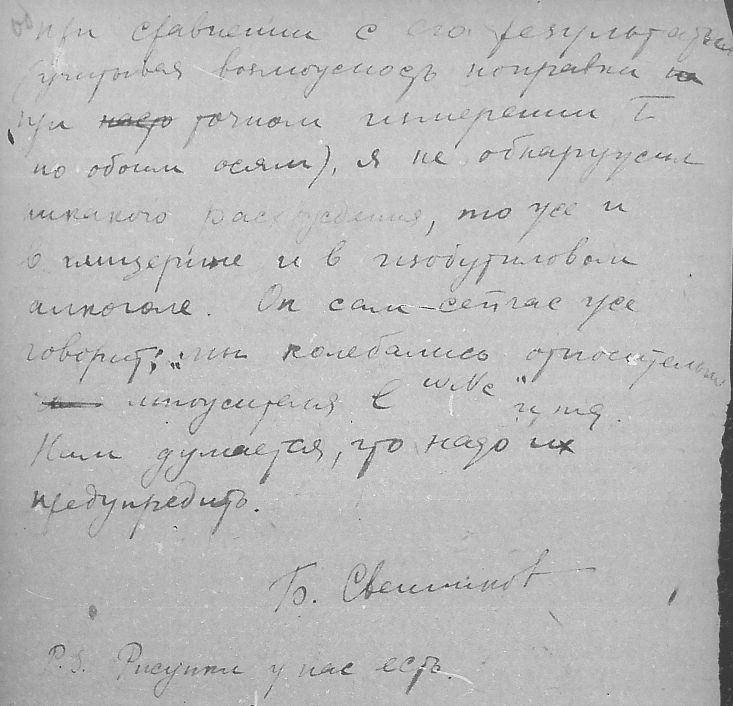 при сравнении с его результатами
(учитывая возможность поправки на
при надо точном измерении T
по обоим осям), я не обнаружил
никакого расхождения, то же и
в глицерине и в изобутиловом
алкоголе. Он сам сейчас уже
говорит: "мы колебались относительно
множителя в" и т.д.
Нам думается, что надо их
предупредить.
Б. Свешников
P.S. Рисунки у нас есть.